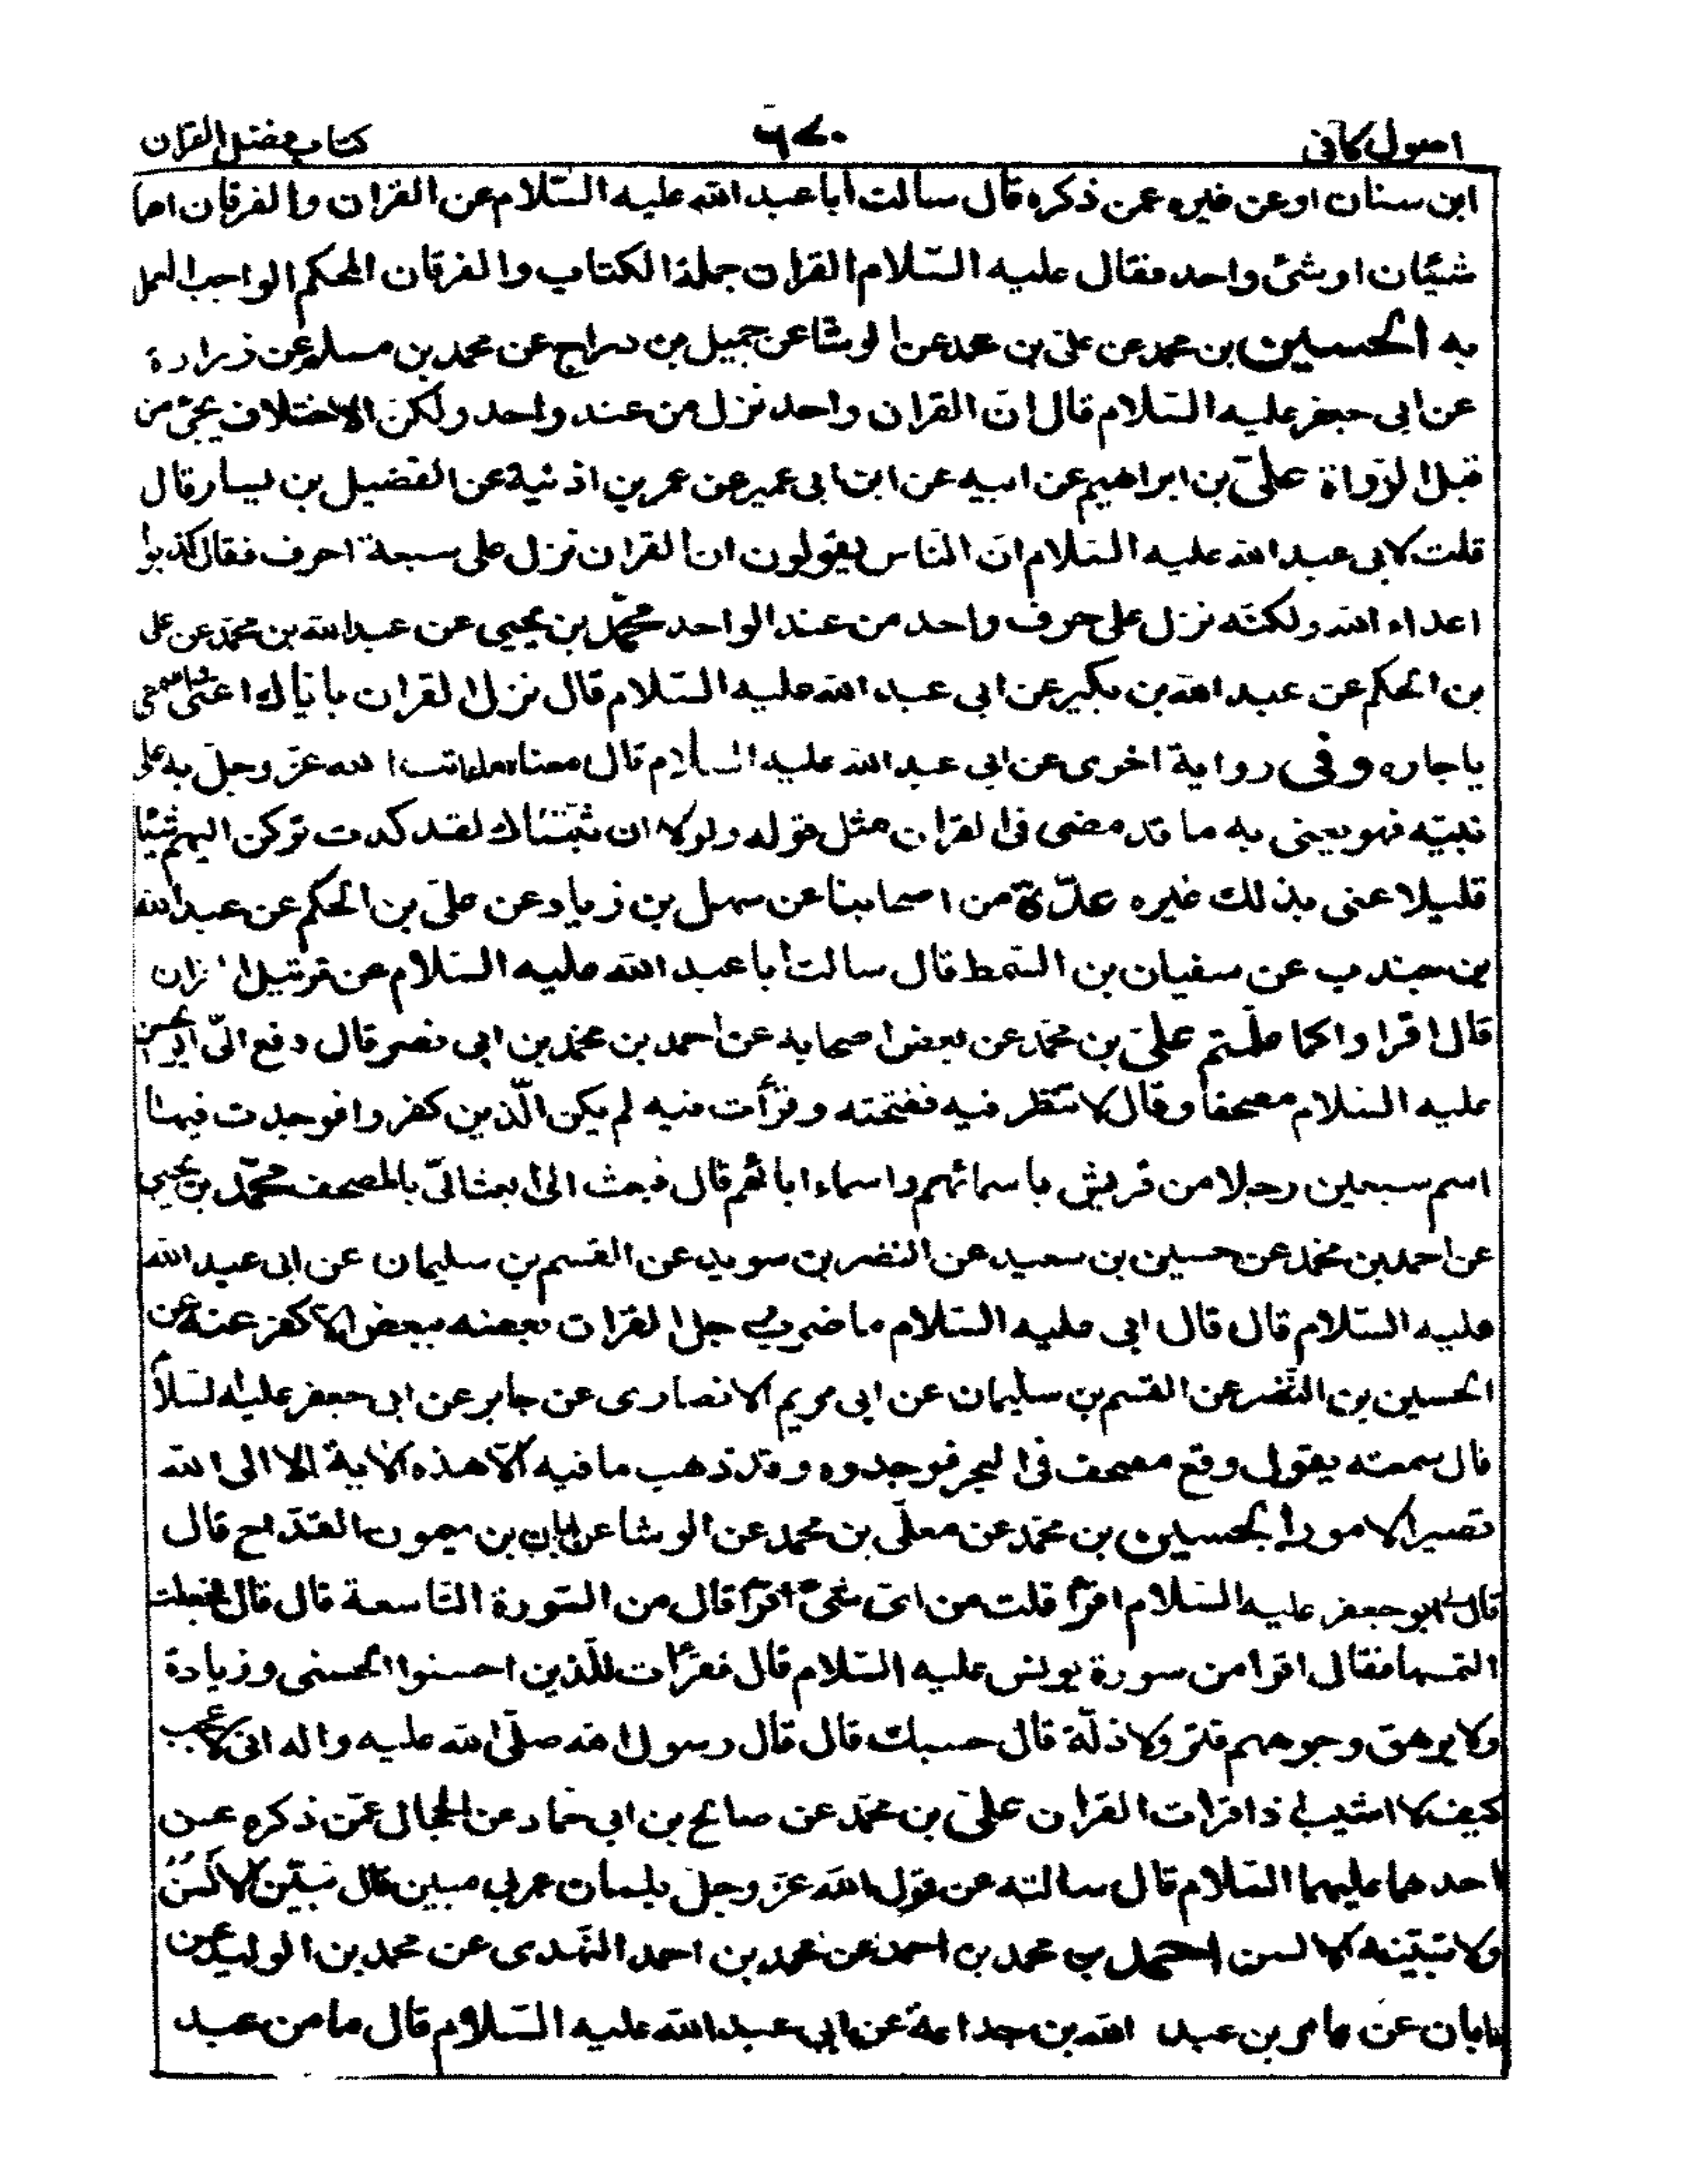 اصول كافى ٦٧٠ كتاب فضل القران
ابن سنان او عن غيره عمن ذكره قال سالت ابا عبد الله عليه السّلام عن القران والفرقان اهما
شيئان او شئ واحد فقال عليه السّلام القران جملة الكتاب والفرقان المحكم الواجب العمل
به الحسين بن محمد عن على بن محمد عن الوشا عن جميل بن دراج عن محمد بن مسلم عن زرارة
عن ابى جعفر عليه السّلام قال انّ القران واحد نزل من عند واحد ولكن الاختلاف يجئ من
قبل الرّواة علىّ بن ابراهيم عن ابيه عن ابن ابى عمير عن عمر بن اذنية عن الفضيل بن يسار قال
قلت لابى عبد الله عليه السّلام انّ النّاس يقولون ان القران نزل على سبعة احرف فقال كذبوا
اعداء الله ولكنّه نزل على حرف واحد من عند الواحد محمّد بن يحيى عن عبد الله بن محمّد عن على
بن الحكم عن عبد الله بن بكير عن ابى عبد الله عليه السّلام قال نزل القران باياك اعنى واسمعى
ياجاره وفى رواية اخرى عن ابى عبد الله عليه السلام قال معناه ما عاتب الله عزّ وجلّ به على
نبيّه فهو يعنى به ما قد مضى فى القران مثل قوله ولولا ان ثبّتناك لقد كدت تركن اليهم شيئا
قليلا عنى بذلك غيره عدّة من اصحابنا عن سهل بن زياد عن علىّ بن الحكم عن عبد الله
بن جندب عن سفيان بن السّمط قال سالت ابا عبد الله عليه السّلام عن ترتيل القران
قال اقراواكما علّمتم علىّ بن محمّد عن بعض اصحابه عن احمد بن محمّد بن ابى نصر قال دفع الىّ ابو الحسن
عليه السّلام مصحفا وقال لا تنظر فيه ففتحته وقرأت فيه لم يكن الّذين كفروا فوجدت فيها
اسم سبعين رجلا من قريش باسمائهم واسماء ابائهم قال فبعث الىّ ابعث الىّ بالمصحف محمّد بن يحيى
عن احمد بن محمّد عن حسين بن سعيد عن النضر بن سويد عن القسم بن سليمان عن ابى عبد الله
عليه السّلام قال قال ابى عليه السّلام ما ضرب رجل القران بعضه ببعض الّا كفر عنه عن
الحسين بن النّضر عن القسم بن سليمان عن ابى مريم الانصارى عن جابر عن ابى جعفر عليه السّلام
قال سمعته يقول وقع مصحف فى البحر فوجدوه وقد ذهب ما فيه الّا هذه الاية الا الى الله
تصير الامور الحسين بن محمّد عن معلّى بن محمد عن الوشا عن ابان بن ميمون القدّاح قال
قال لى ابو جعفر عليه السّلام اقرأ قلت من اىّ شئ اقرأ قال من السّورة التّاسعة قال قال فجعلت
التمسها فقال اقرا من سورة يونس عليه السّلام قال فقرأت للّذين احسنوا الحسنى وزيادة
ولا يرهق وجوههم قتر ولا ذلّة قال حسبك قال قال رسول الله صلّى الله عليه واله انى لاعجب
كيف لا اشيب اذا قرات القران علىّ بن محمّد عن صالح بن ابى حمّاد عن الحجال عمّن ذكره عن
احدهما عليهما السّلام قال سالته عن قول الله عزّ وجلّ بلسان عربى مبين قال يبيّن الالسن
ولا تبيّنه الالسن احمد بن محمد بن احمد عن محمد بن احمد النّهدى عن محمد بن الوليد عن
ابان عن عامر بن عبد الله بن جداعة عن ابى عبد الله عليه السّلام قال ما من عبد